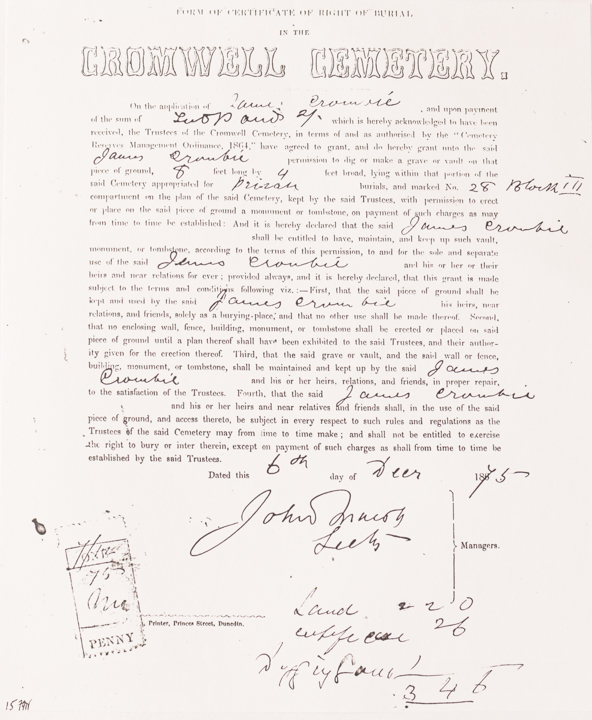 FORM OF CERTIFICATE OF RIGHT OF BURIAL
IN THE
CROMWELL CEMETERY.
On the application of James Crombie , and upon payment
of the sum of Two Pounds 2/- which is hereby acknowledged to have been
received, the Trustees of the Cromwell Cemetery, in terms of and as authorised by the "Cemetery
Reserves Management Ordinance, 1864," have agreed to grant, and do hereby grant unto the said
James Crombie permission to dig or make a grave or vault on that
piece of ground, 8 feet long by 4 feet broad, lying within that portion of the
said Cemetery appropriated for burials, and marked No. 28 Block III
compartment on the plan of the said Cemetery, kept by the said Trustees, with permission to erect
or place on the said piece of ground a monument or tombstone, on payment of such charges as may
from time to time be established: And it is hereby declared that the said James Crombie
shall be entitled to have, maintain, and keep up such vault,
monument, or tombstone, according to the terms of this permission, to and for the sole and separate
use of the said James Crombie and his or her or their
heirs and near relations for ever; provided always, and it is hereby declared, that this grant is made
subject to the terms and conditions following viz.:—First, that the said piece of ground shall be
kept and used by the said James Crombie his heirs, near
relations, and friends, solely as a burying-place, and that no other use shall be made thereof. Second,
that no enclosing wall, fence, building, monument, or tombstone shall be erected or placed on said
piece of ground until a plan thereof shall have been exhibited to the said Trustees, and their author-
ity given for the erection thereof. Third, that the said grave or vault, and the said wall or fence,
building, monument, or tombstone, shall be maintained and kept up by the said James
Crombie and his or her heirs. relations, and friends, in proper repair,
to the satisfaction of the Trustees. Fourth, that the said James Crombie
and his or her heirs and near relatives and friends shall, in the use of the said
piece of ground, and access thereto, be subject in every respect to such rules and regulations as the
Trustees of the said Cemetery may from time to time make; and shall not be entitled to exercise
the right to bury or inter therein, except on payment of such charges as shall from time to time be
established by the said Trustees.
Dated this 6th day of Decr 1875
John
Secty
Managers.
75
One
PENNY
Printer, Princes Street, Dunedin.
Land 2 2 0
certificate 2 6
3 4 6